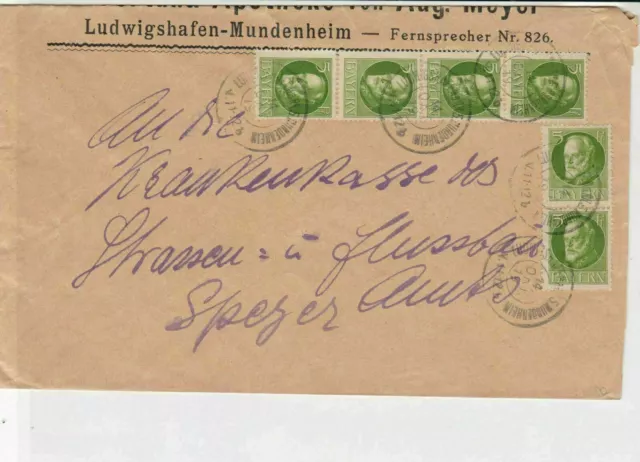 Apotheke von Aug. Meyer
Ludwigshafen-Mundenheim — Fernsprecher Nr. 826.
5 5 5 5
BAYERN BAYERN BAYERN BAYERN
MUNDENHEIM
An die
Krankenkasse des
Strassen- u Flussbau
Amts
Speyer
5
BAYERN
5
BAYERN
MUNDENHEIM